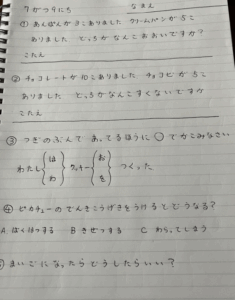 7がつ9にち なまえ
① あんぱんが3こありました クリームパンが5こ
ありました どっちがなんこおおいですか?
こたえ
② チョコレートが10こありました チョコビが5こ
ありました どっちがなんこすくないですか
こたえ
③ つぎのぶんで あってるほうに ○ でかこみなさい
わたし{は わ}クッキー{お を}つくった
④ ピカチューのでんきこうげきをうけるとどうなる?
A ばくはつする B きぜつする C わらってしまう
まいごになったらどうしたらいい?